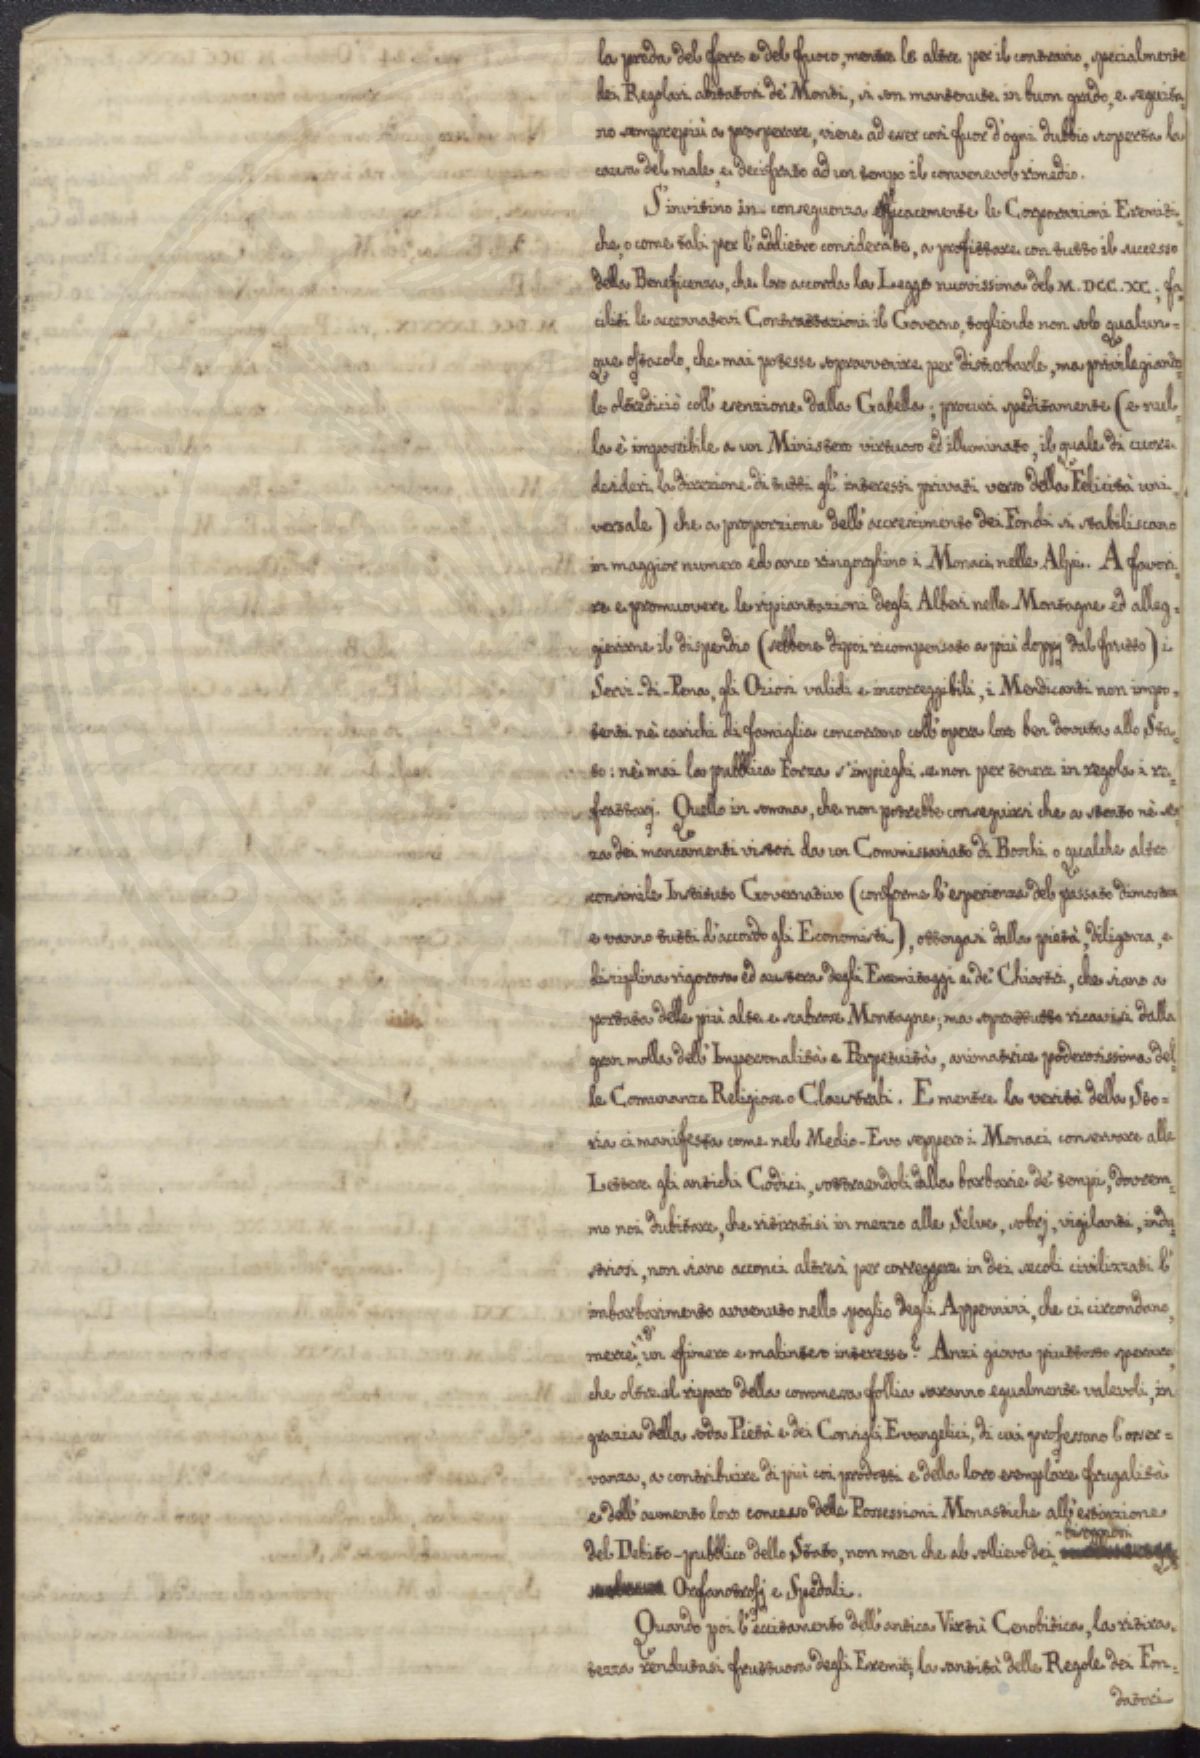 la preda del ferro e del fuoco, mentre le altre per il contrario, specialmente
dei Regolari abitatori de' Monti, si son mantenute in buon grado, e seguita-
no semprepiù a prosperare, viene ad esser così fuor d'ogni dubbio scoperta la
causa del male, e decifrato ad un tempo il convenevol rimedio.
S'invitino in conseguenza efficacemente le Corporazioni Eremiti-
che, o come tali per l'addietro considerate, a profittare con tutto il successo
della Beneficenza, che loro accorda la Legge nuovissima del M. DCC. XC.; fa-
ciliti le accennatevi Contrattazioni il Governo, togliendo non solo qualun-
que ostacolo, che mai potesse sopravvenire per disturbarle, ma privilegiando-
le oltrediciò coll' esenzione dalla Gabella; procuri speditamente (e nul-
la è impossibile a un Ministero virtuoso ed illuminato, il quale di cuore
desideri la direzione di tutti gl' interessi privati verso della Felicità uni-
versale) che a proporzione dell' accrescimento dei Fondi si stabiliscano
in maggior numero ed anco ringorghino i Monaci nelle Alpi. A favori-
re e promuovere le ripiantazioni degli Alberi nelle Montagne ed alleg-
gierirne il dispendio (sebbene dipoi ricompensato a più doppj dal frutto) i
Servi-di-Pena, gli Oziosi validi e incorreggibili, i Mendicanti non impo-
tenti nè carichi di famiglia concorrano coll' opera loro ben dovuta allo Sta-
to: nè mai la pubblica Forza s'impieghi se non per tenere in regola i re-
frattarj. Quello in somma, che non potrebbe conseguirsi che a stento nè se-
za dei mancamenti vistosi da un Commissariato di Boschi o qualche altro
consimile Instituto Governativo (conforme l'esperienza del passato dimostra
e vanno tutti d'accordo gli Economisti), ottengasi dalla pietà, diligenza, e
disciplina rigorosa ed austera degli Eremitaggi e de' Chiostri, che siano a
portata delle più alte e scabrose Montagne; ma soprattutto ricavisi dalla
gran molla dell' Impersonalità e Perpetuità, animatrice poderosissima del-
le Comunanze Religiose o Claustrali. E mentre la verità della Sto-
ria ci manifesta come nel Medio-Evo seppero i Monaci conservare alle
Lettere gli antichi Codici, sottraendoli dalla barbarie de' tempi, dovrem-
mo noi dubitare, che ritiratisi in mezzo alle Selve, sobrj, vigilanti, indu-
striosi, non siano acconci altresì per correggere in dei secoli civilizzati l'
imbarbarimento avvenuto nello spoglio degli Appennini, che ci circondano,
mercè d' un efimero e malinteso interesse? Anzi giova piuttosto sperare,
che oltre al riparo della commessa follia saranno egualmente valevoli, in
grazia della soda Pietà e dei Consigli Evangelici, di cui professano l'osser-
vanza, a contribuire di più coi prodotti e della loro esemplare frugalità
e dell' aumento loro concesso delle Possessioni Monastiche all' estinzione
del Debito-pubblico dello Stato, non men che al sollievo dei bisognosi
Orfanotrofj e Spedali.
Quando poi l'eccitamento dell' antica Virtù Cenobitica, la ritira-
tezza rendutasi fruttuosa degli Eremiti, la santità delle Regole dei Fon-
datori